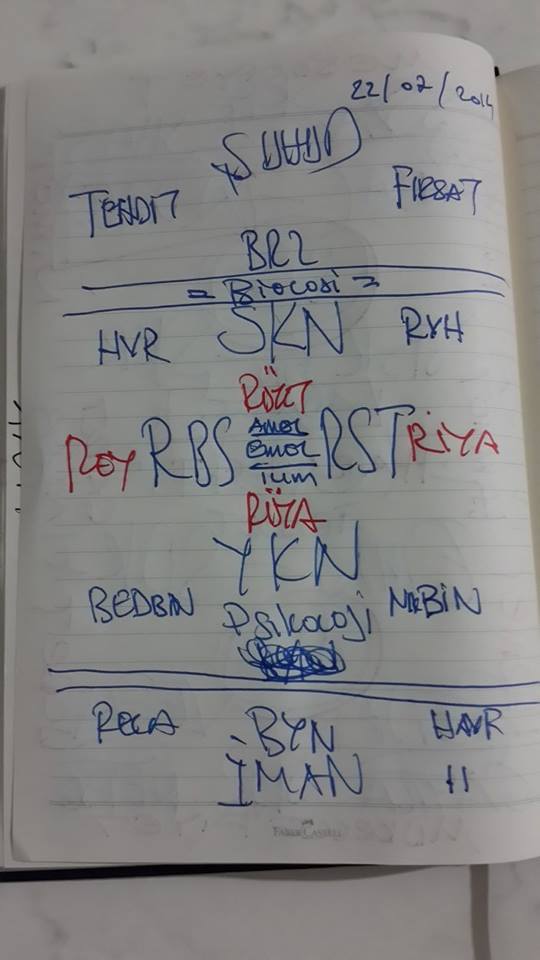 22/07/2014
ŞUHUD
TEHDİT FIRSAT
BRZ
= Biyoloji =
HVR SKN RVH
RÜ'ET
Amel
REY RBS Emel RST RİYA
ilim
RÜYA
YKN
BEDBİN Psikoloji NİKBİN
RECA BYN HAVF
İMAN "
FABER-CASTELL